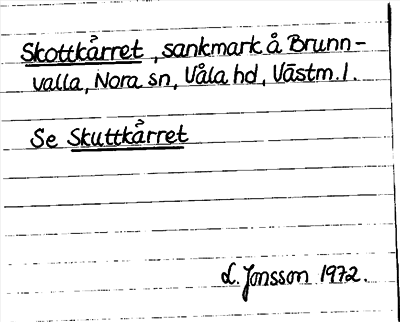 Skottkårret, sankmark å Brunn-
valla, Nora sn, Våla hd, Västm. l.
Se Skuttkårret
L. Jonsson 1972.